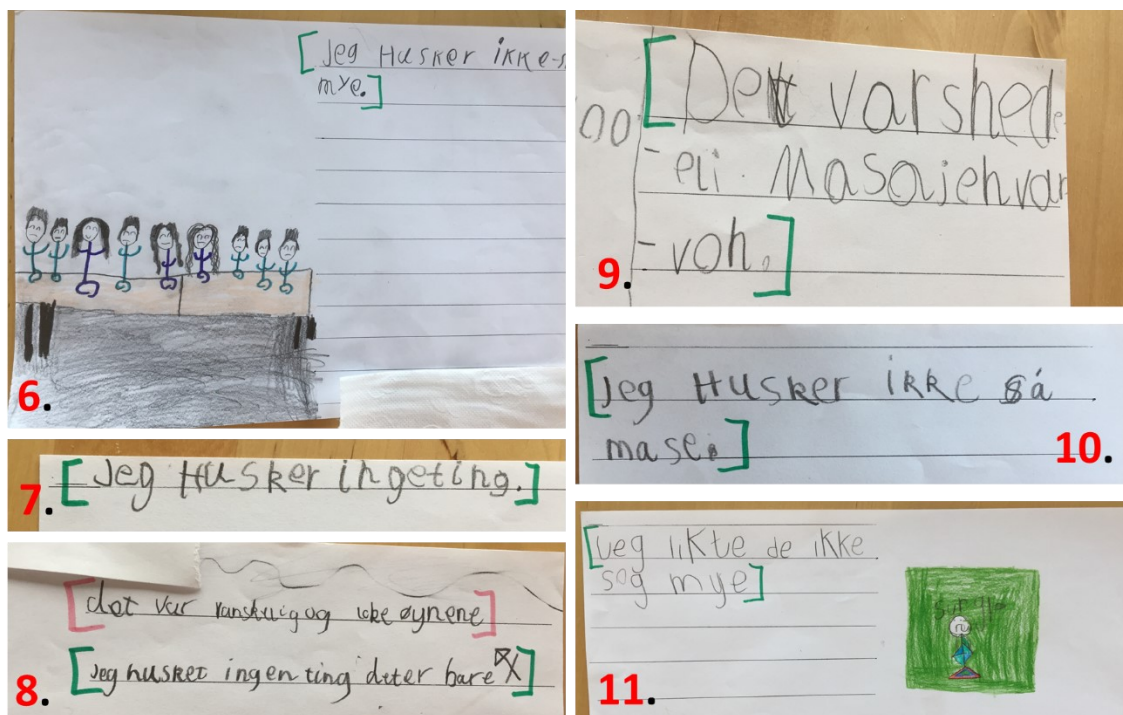 [Jeg Husker ikke-s
mye.]
6.
7. [Jeg Husker ingeting.]
[det var vanskuigog ucke øynene]
8. [Jeg husket ingenting deter bare X]
[Dett varshede
-eli. Masaiehvar
-voh.]
9.
[Jeg Husker ikke så
masei]
10.
[Jeg likte de ikke
sog mye]
11.